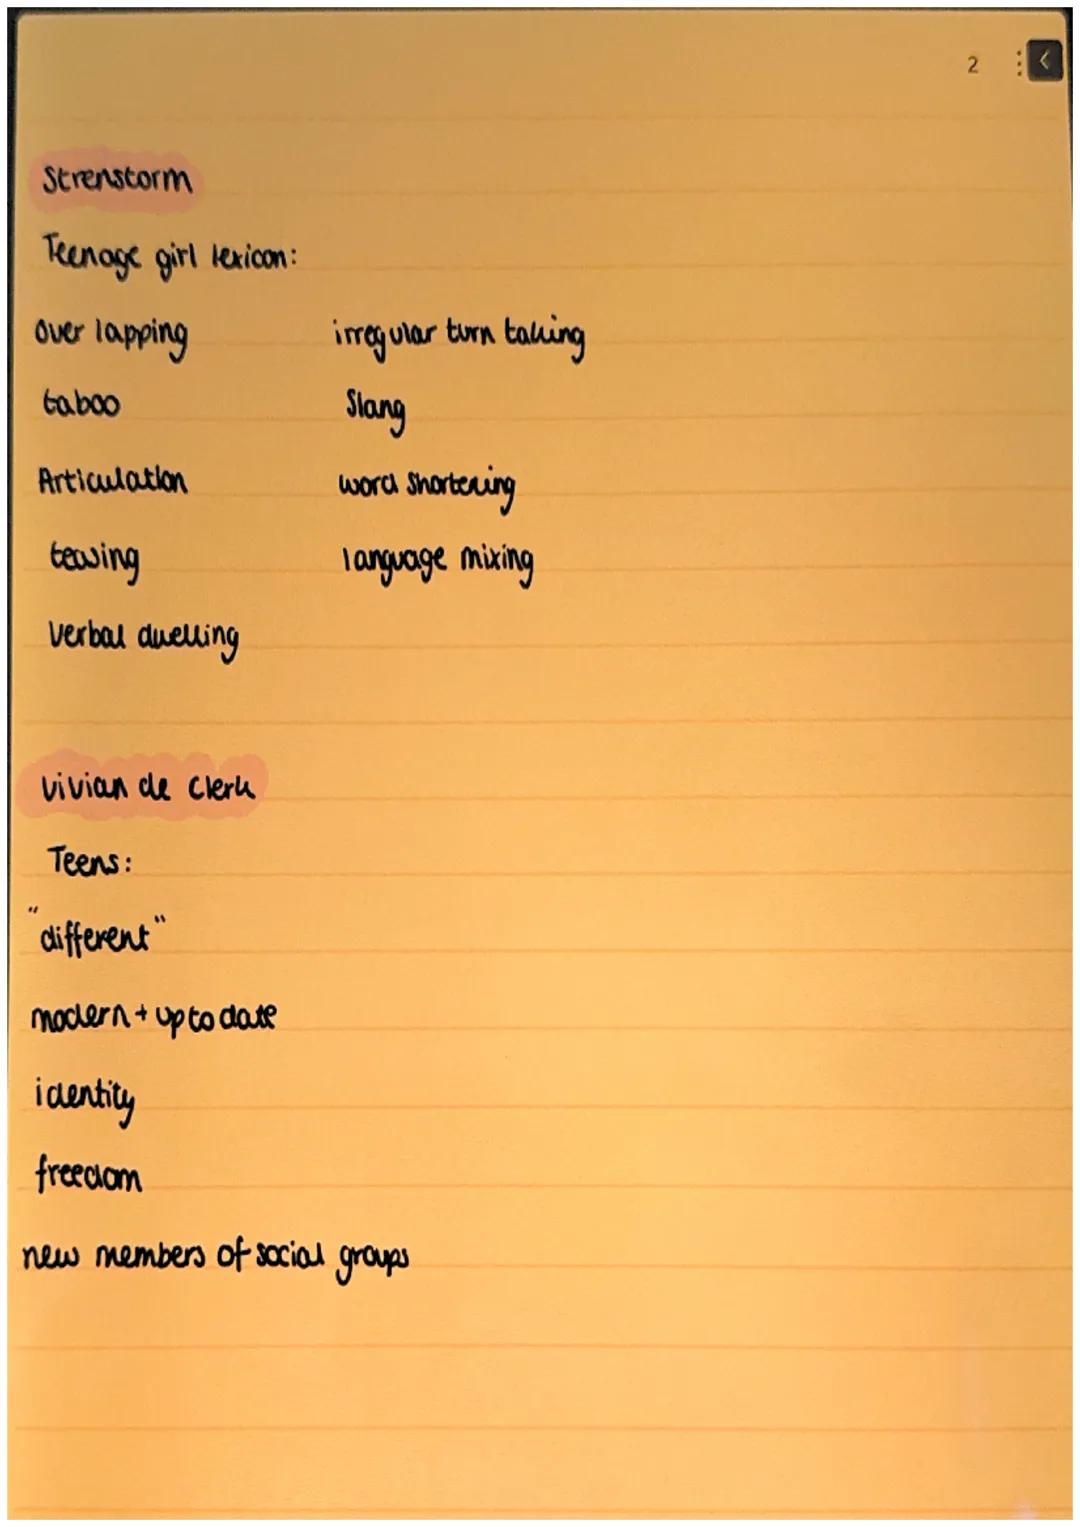 2
Strenstorm
Teenage girl lexicon:
over lapping irregular turn taking
taboo Slang
Articulation word shortening
teasing language mixing
Verbal duelling
vivian de Clerk
Teens:
"different"
modern + up to date
identity
freedom
new members of social groups